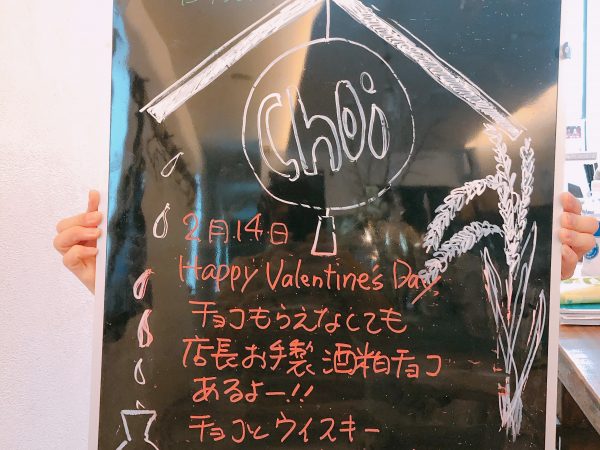 choi
2月14日
Happy Valentine's Day
チョコもらえなくても
店長お手製 酒粕チョコ
あるよー!!
チョコとウイスキー